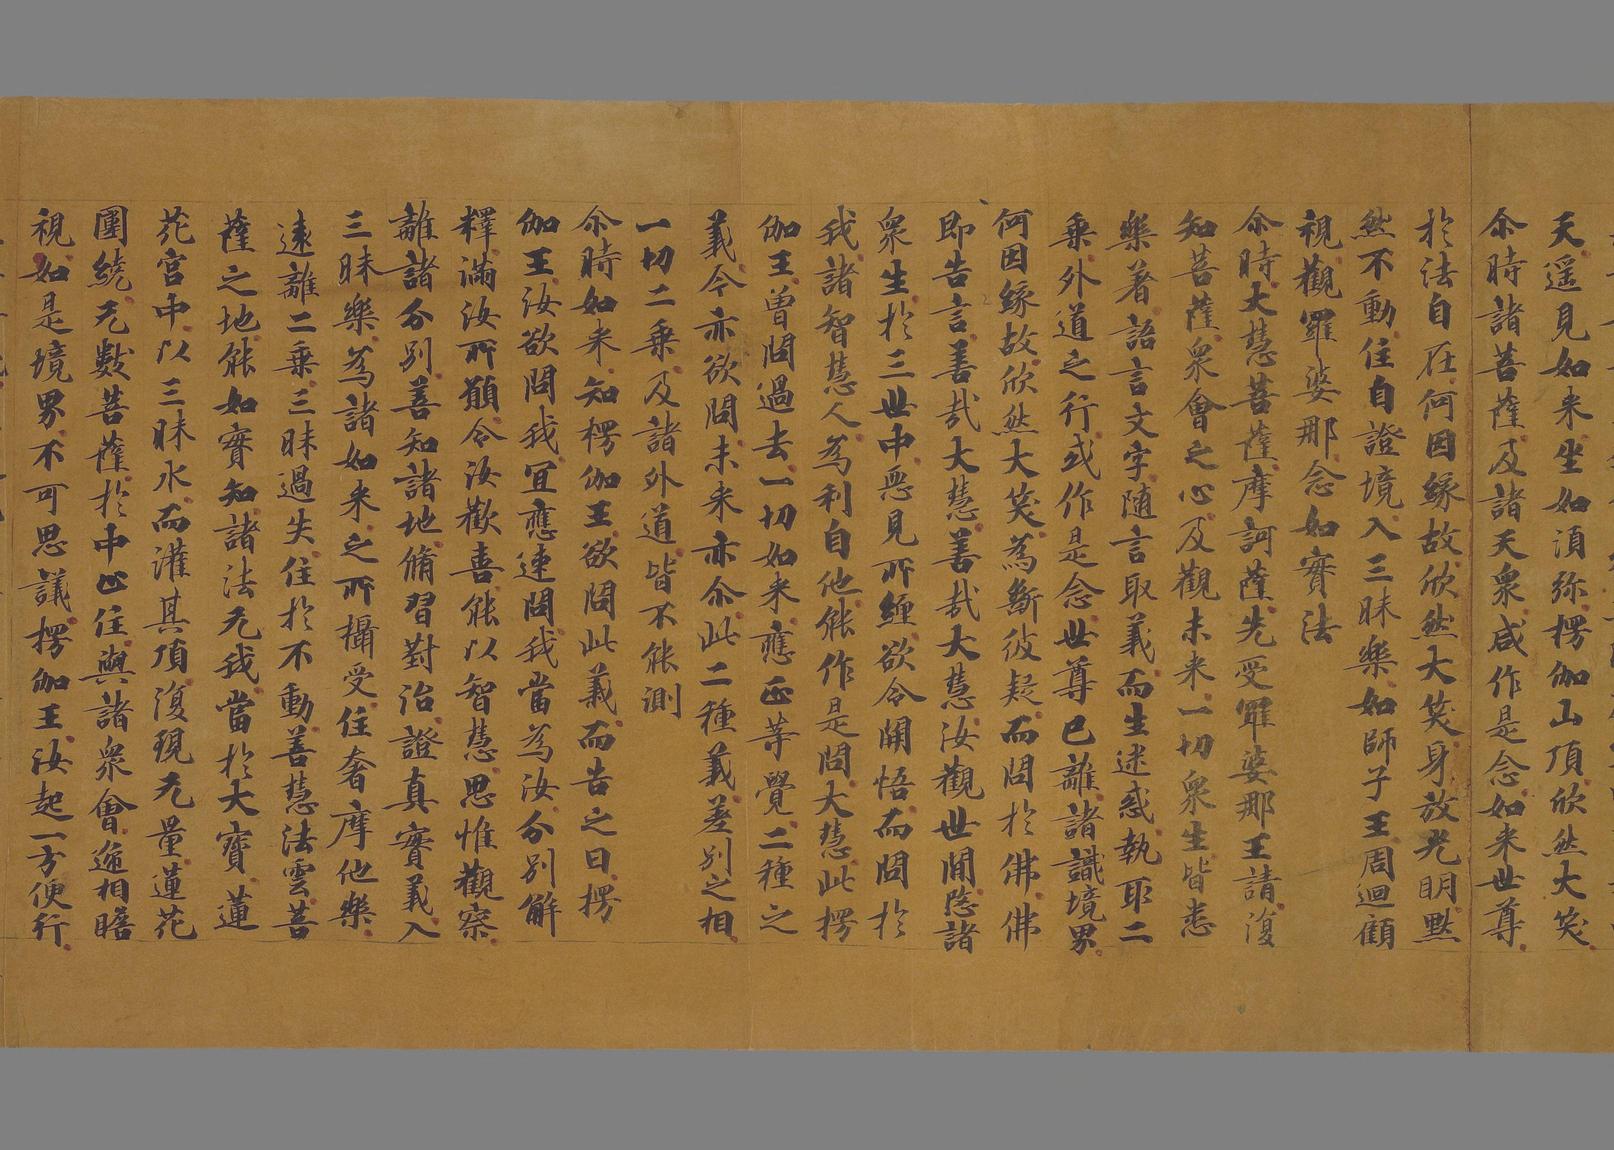 天遥見如来坐如湏弥楞伽山頂欣然大笑
尒時諸菩薩及諸天衆咸作是念如来世尊
於法自在何因縁故欣然大笑身放光明默
然不動住自證境入三昧樂如師子王周迴顧
視觀羅婆那念如實法
尒時大慧菩薩摩訶薩先受羅婆那王請復
知菩薩衆會之心及觀未来一切衆生皆悉
樂著語言文字随言取義而生迷惑執取二
乗外道之行或作是念世尊已離諸識境界
何因縁故欣然大笑為断彼疑而問於佛佛
即告言善哉大慧善哉大慧汝觀世間愍諸
衆生於三世中惡見所纏欲令開悟而問於
我諸智慧人為利自他能作是問大慧此楞
伽王曽問過去一切如来應正等覺二種之
義今亦欲問未来亦尒此二種義差别之相
一切二乗及諸外道皆不能測
尒時如来知楞伽王欲問此義而告之曰楞
伽王汝欲問我宜應速問我當為汝分别解
釋滿汝所願令汝歡喜能以智慧思惟觀察
離諸分别善知諸地脩習對治證真實義入
三昧樂為諸如来之所攝受住奢摩他樂
遠離二乗三昧過失住於不動善慧法雲菩
薩之地能如實知諸法无我當於大寶蓮
花宫中以三昧水而灌其頂復現无量蓮花
圍繞无數菩薩於中止住與諸衆會遞相瞻
視如是境界不可思議楞伽王汝起一方便行